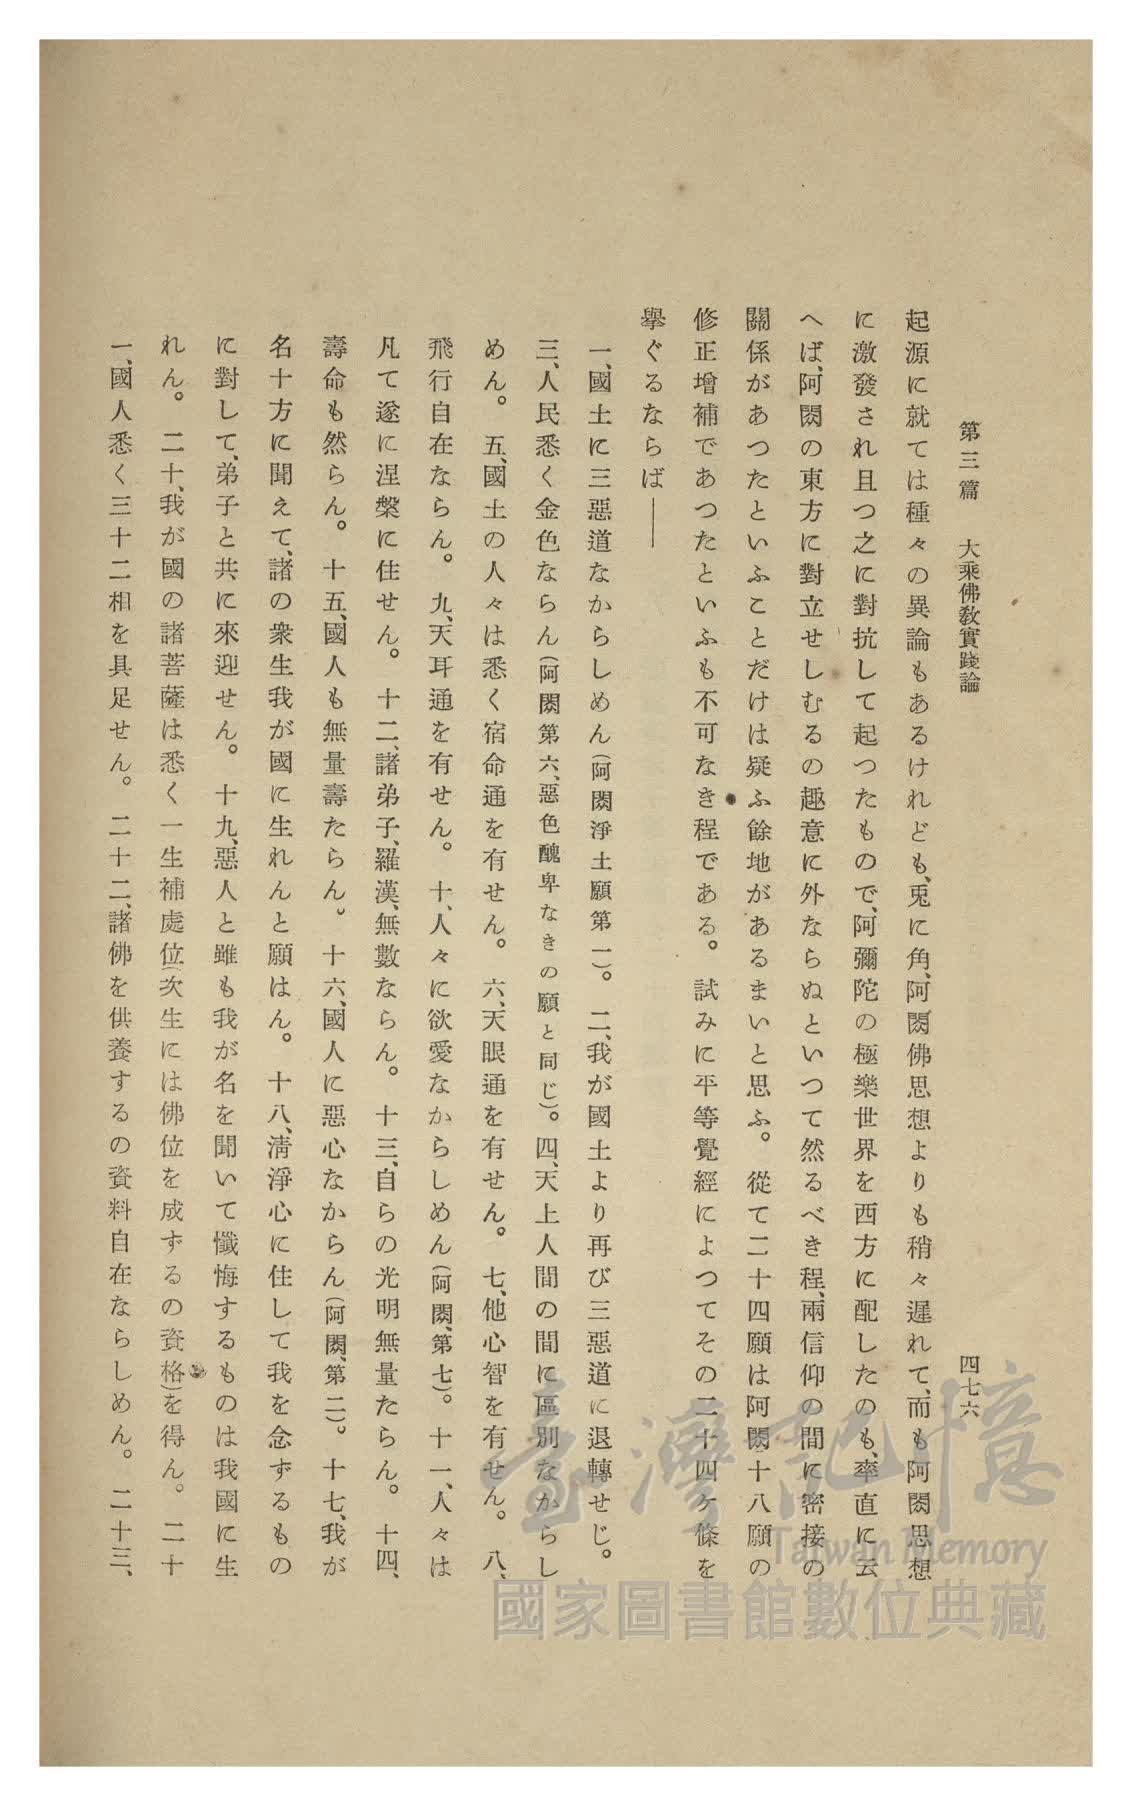 第三篇　大乘佛教實踐論　四七六
起源に就ては種々の異論もあるけれども、兎に角、阿閦佛思想よりも稍々遲れて、而も阿閦思想
に激發され且つ之に對抗して起つたもので、阿彌陀の極樂世界を西方に配したのも、率直に云
へば、阿閦の東方に對立せしむるの趣意に外ならぬといつて然るべき程、兩信仰の間に密接の
關係があつたといふことだけは疑ふ餘地があるまいと思ふ。從て二十四願は阿閦十八願の
修正增補であつたといふも不可なき程である。試みに平等覺經によつてその二十四ケ條を
擧ぐるならば――
一、國土に三惡道なからしめん(阿閦淨土願第一)。二、我が國土より再び三惡道に退轉せじ。
三、人民悉く金色ならん(阿閦第六、惡色醜卑なきの願と同じ)。四、天上人間の間に區別なからし
めん。五、國土の人々は悉く宿命通を有せん。六、天眼通を有せん。七、他心智を有せん。八、
飛行自在ならん。九、天耳通を有せん。十、人々に欲愛なからしめん(阿閦、第七)。十一、人々は
凡て遂に涅槃に住せん。十二、諸弟子、羅漢、無數ならん。十三、自らの光明無量たらん。十四、
壽命も然らん。十五、國人も無量壽たらん。十六、國人に惡心なからん(阿閦、第二)。十七、我が
名十方に聞えて、諸の衆生我が國に生れんと願はん。十八、淸淨心に住して我を念ずるもの
に對して、弟子と共に來迎せん。十九、惡人と雖も我が名を聞いて懺悔するものは我國に生
れん。二十、我が國の諸菩薩は悉く一生補處位(次生には佛位を成ずるの資格)を得ん。二十
一、國人悉く三十二相を具足せん。二十二、諸佛を供養するの資料自在ならしめん。二十三、
臺灣記憶
Taiwan Memory
國家圖書館數位典藏